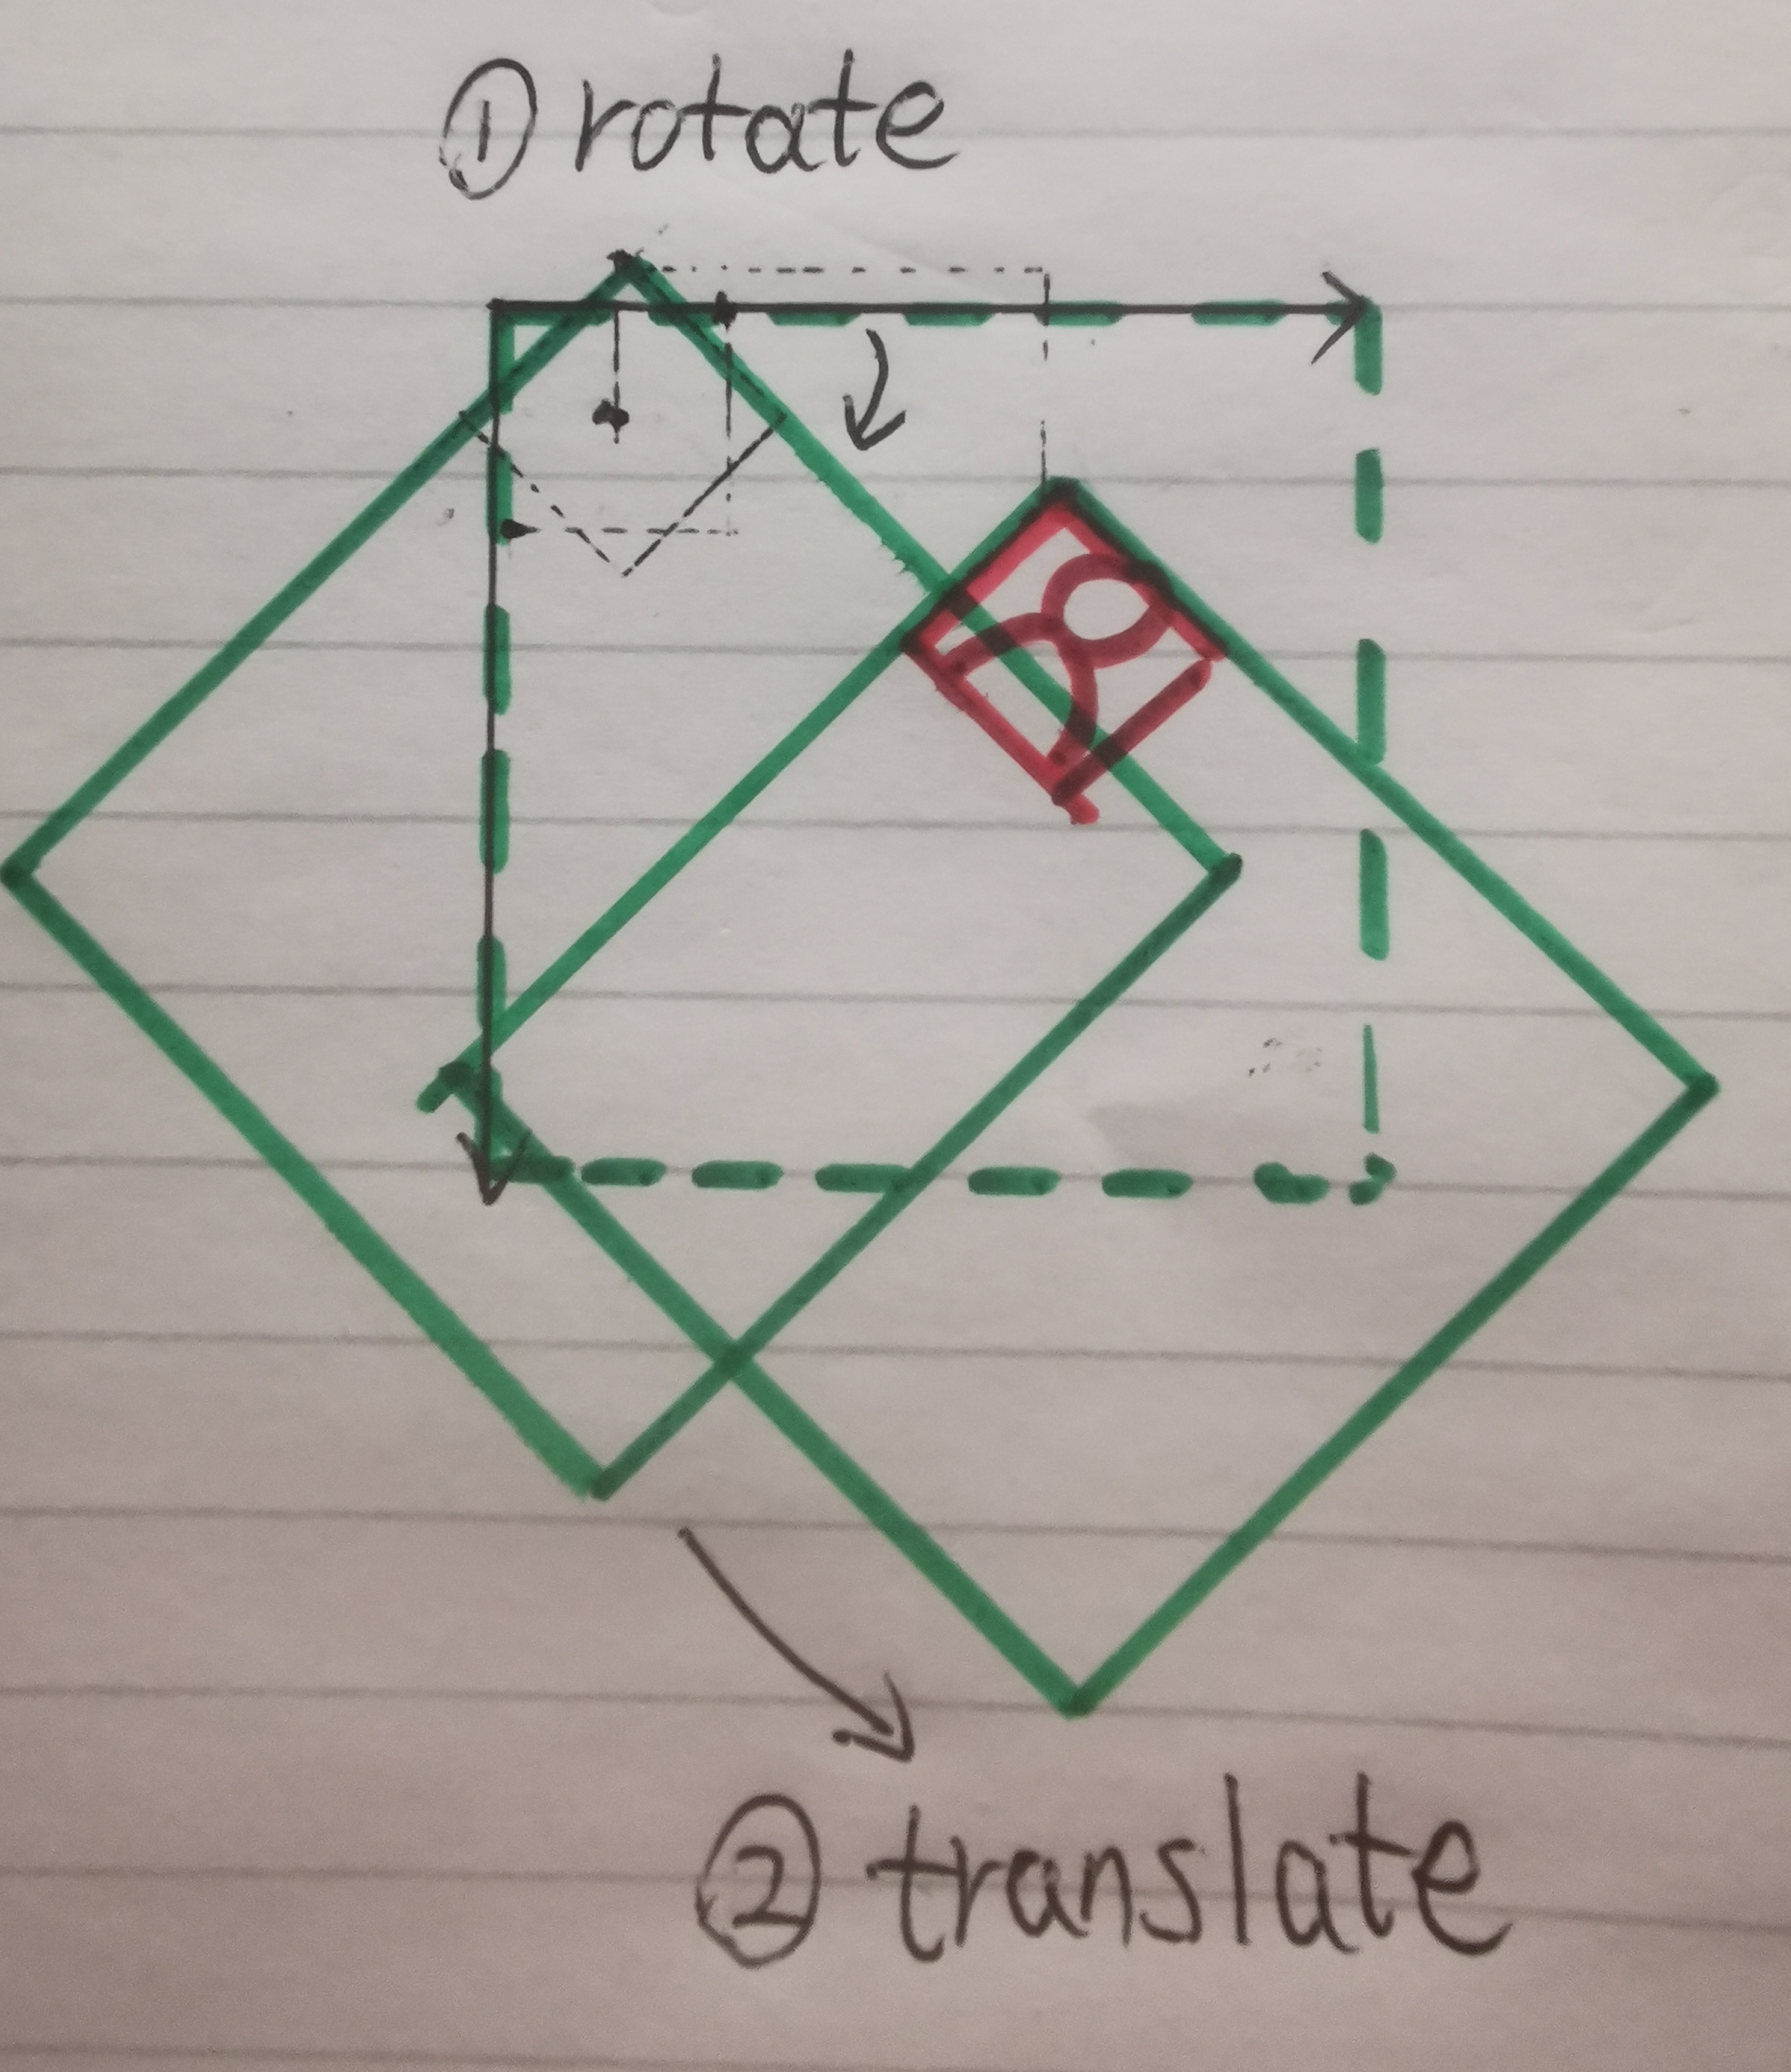 ① rotate
② translate